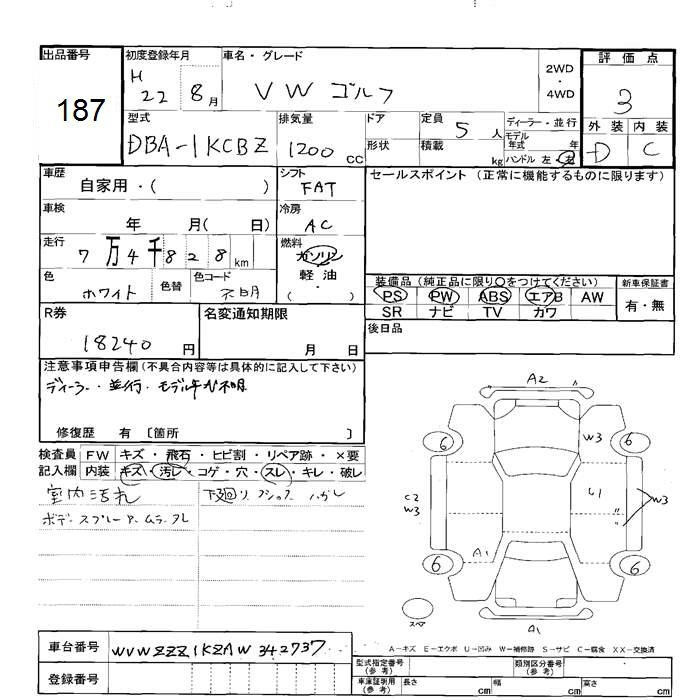 出品番号 初度登録年月 車名・グレード 評価点
187 H 22 8月 VW ゴルフ 2WD・4WD 3
型式 排気量 ドア 定員 ディーラー・並行 外装 内装
DBA-1KCBZ 1200cc 5人 モデル年式 年 D C
形状 積載 kg ハンドル 左・右
車歴 シフト セールスポイント (正常に機能するものに限ります)
自家用・( ) FAT
車検 冷房
年 月( 日) AC
走行 燃料
7万4千828km ガソリン
色 色替 色コード 軽油
ホワイト 不明 ( )
装備品 (純正品に限り○をつけてください) 新車保証書
PS PW ABS エアB AW 有・無
SR ナビ TV カワ
R券 名変通知期限 後日品
18240円 月 日
注意事項申告欄 (不具合内容等は具体的に記入して下さい)
ディーラー・並行・モデル年式不明
修復歴 有 〔箇所 〕
検査員 FW キズ・飛石・ヒビ割・リペア跡・×要
記入欄 内装 キズ・汚レ・コゲ・穴・スレ・キレ・破レ
室内汚れ
ボデースプレー
A2
W3
6 6
C2 W3
U1
W3
A1
6 6
スペア
A1
A-キズ E-エクボ U-凹み W-補修跡 S-サビ C-腐食 XX-交換済
車台番号 WVWZZZ1KZAW342737
登録番号
型式指定番号 (参考) 類別区分番号 (参考)
車庫証明用 (参考) 長さ cm 幅 cm 高さ cm